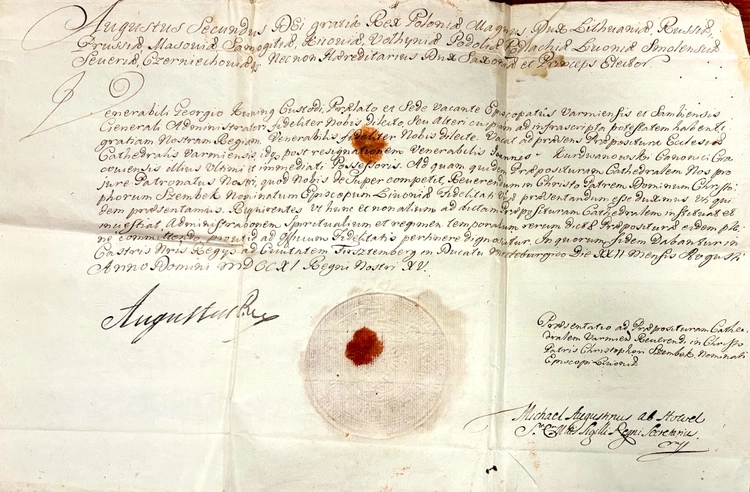 Augustus Secundus Dei gratia Rex Poloniæ, Magnus Dux Lithuaniæ, Russiæ,
Prussiæ Masoviæ Samogitiæ, Kijoviæ, Volhyniæ Podoliæ Podlachiæ Livoniæ Smolensciæ
Severiæ, Czerniechoviæq, Necnon Hæreditarius Dux Saxoniæ et Princeps Elector.
Venerabili Georgio Kuning Custodi, Prælato et Sede Vacante Episcopatus Varmiensis et Sambiensis
Generali Administratori fideliter Nobis dilecto, Seu Alteri cuipiam ad infrascripta potestatem habenti
gratiam Nostram Regiam. Venerabilis fideliter Nobis dilecte. Vacat ad præsens Præpositura Ecclesiæ
Cathedralis Varmiensis post resignationem Venerabilis Joannis Kurdwanowski Canonici Cra
coviensis illius Ultimi et immediati Possessoris. Ad quam quidem Præposituram Cathedralem Nos pro
Jure Patronatus Nostri, quod Nobis de Super competit, Reverendum in Christo Patrem Dominum Christo
phorum Szembek Nominatum Episcopum Livoniæ Fidelitati Væ præsentandum esse duximus Uti qui
dem præsentamus. Requirentes Ut hunc et non alium ad dictam Præposituram Cathedralem instituat et
investiat, Administrationem Spiritualium et regimen temporalium rerum dictæ Præposituræ eidem ple
ne committendo prout id ad officium Fidelitatis pertinere dignoscitur. In quorum fidem Dabantur in
Castris Nris Regys ad Civitatem in Ducatu Die XXII Mensis Augusti
Anno Domini MDCCXI Regni Nostri XV.
Augustus Rex
Præsentatio ad Præposituram Cathe
dralem Varmien Reverend in Christo
Patris Christophori Szembek Nominati
Episcopi Livoniæ
Michael Augustinus ab
Sigilli Regni Secretarius